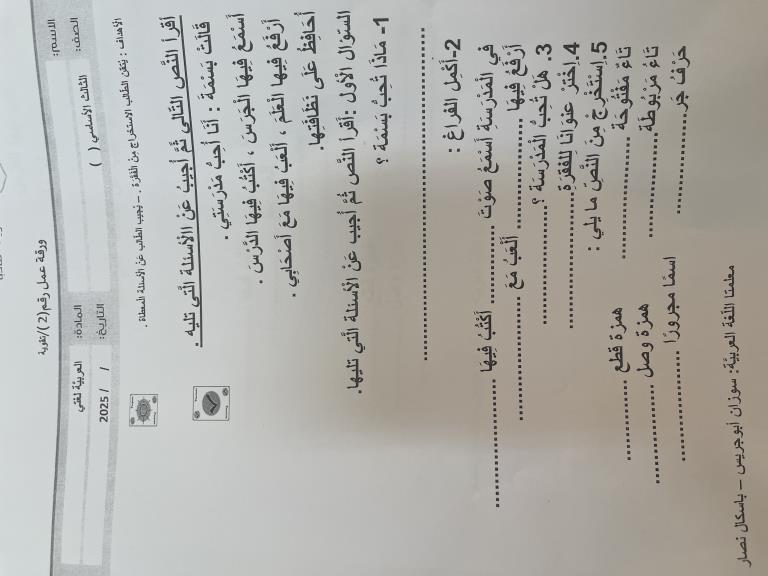 ورقة عمل رقم(2)/تقوية
الاسم: المادة: العربيّة لغتي
الصف: الثالث الأساسي ( ) التاريخ: / / 2025
الأهداف : يتقن الطالب الاستخراج من الفقرة . – يُجيب الطالب عن الأسئلة المعطاة .
أقرأ النَّص التالي ثم أجيبُ عن الأسئلة التي تليه .
قالَتْ بَسْمَةُ : أَنا أُحِبُّ مَدْرَسَتِي .
أَسْمَعُ فِيهَا الْجَرَسَ ، أَكْتُبُ فِيهَا الدَّرْسَ .
أَرْفَعُ فِيهَا الْعَلَمَ ، أَلْعَبُ فِيهَا مَعَ أَصْحَابِي .
أُحَافِظُ عَلَى نَظَافَتِهَا.
السّؤال الأول :أَقرأ النّص ثمَّ أجيب عن الأسئلة الّتي تليها.
1- مَاذَا تُحِبُّ بَسْمَة ؟
..........................................................
2-أُكْمِل الفراغ :
في الْمَدْرَسَةِ أَسْمَعُ صَوْتَ .............. أَكْتُبُ فِيهَا ......................
أَرْفَعُ فِيهَا .................. أَلْعَبُ مَعَ ......................
3. هَلْ تُحِبُّ الْمَدْرَسَة ؟ ......................
4.اِخْتَرْ عنوانًا لِلْفَقرَة......................
5.اِسْتَخْرِجْ مِنَ النَّصِّ ما يلي :
تَاءٌ مَفْتُوحَة .................. همزة قطع ..................
تَاءٌ مَرْبُوطَة .................. همزة وصل ..................
حَرْفُ جَر.................. اسمًا مجرورًا ..................
معلمتا اللّغة العربيّة: سوزان أبوجريس – باسكال نصار